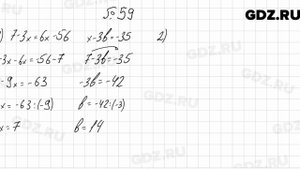 № 59
GDZ.RU
) 7-3x=6x-56 x-3в=-35 2)
-3x-6x=-56-7 7-3в=-35
-9x=-63 -3в=-42
x=-63:(-9) в=-42:(-3)
x=7 в=14
GDZ.RU